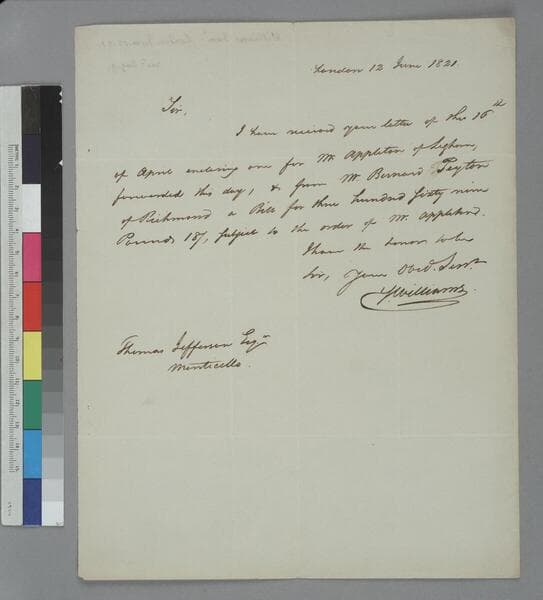 London 12 June 1821.
Sir,
I have received your letter of the 16th
of April enclosing one for Mr Appleton of Leghorn,
forwarded this day, & from Mr Bernard Peyton
of Richmond a Bill for three hundred sixty nine
Pounds 18/, subject to the order of Mr Appleton.
I have the honor to be
Sir, Your Obed. Servt
SWilliams.
Thomas Jefferson Esqr
Monticello.